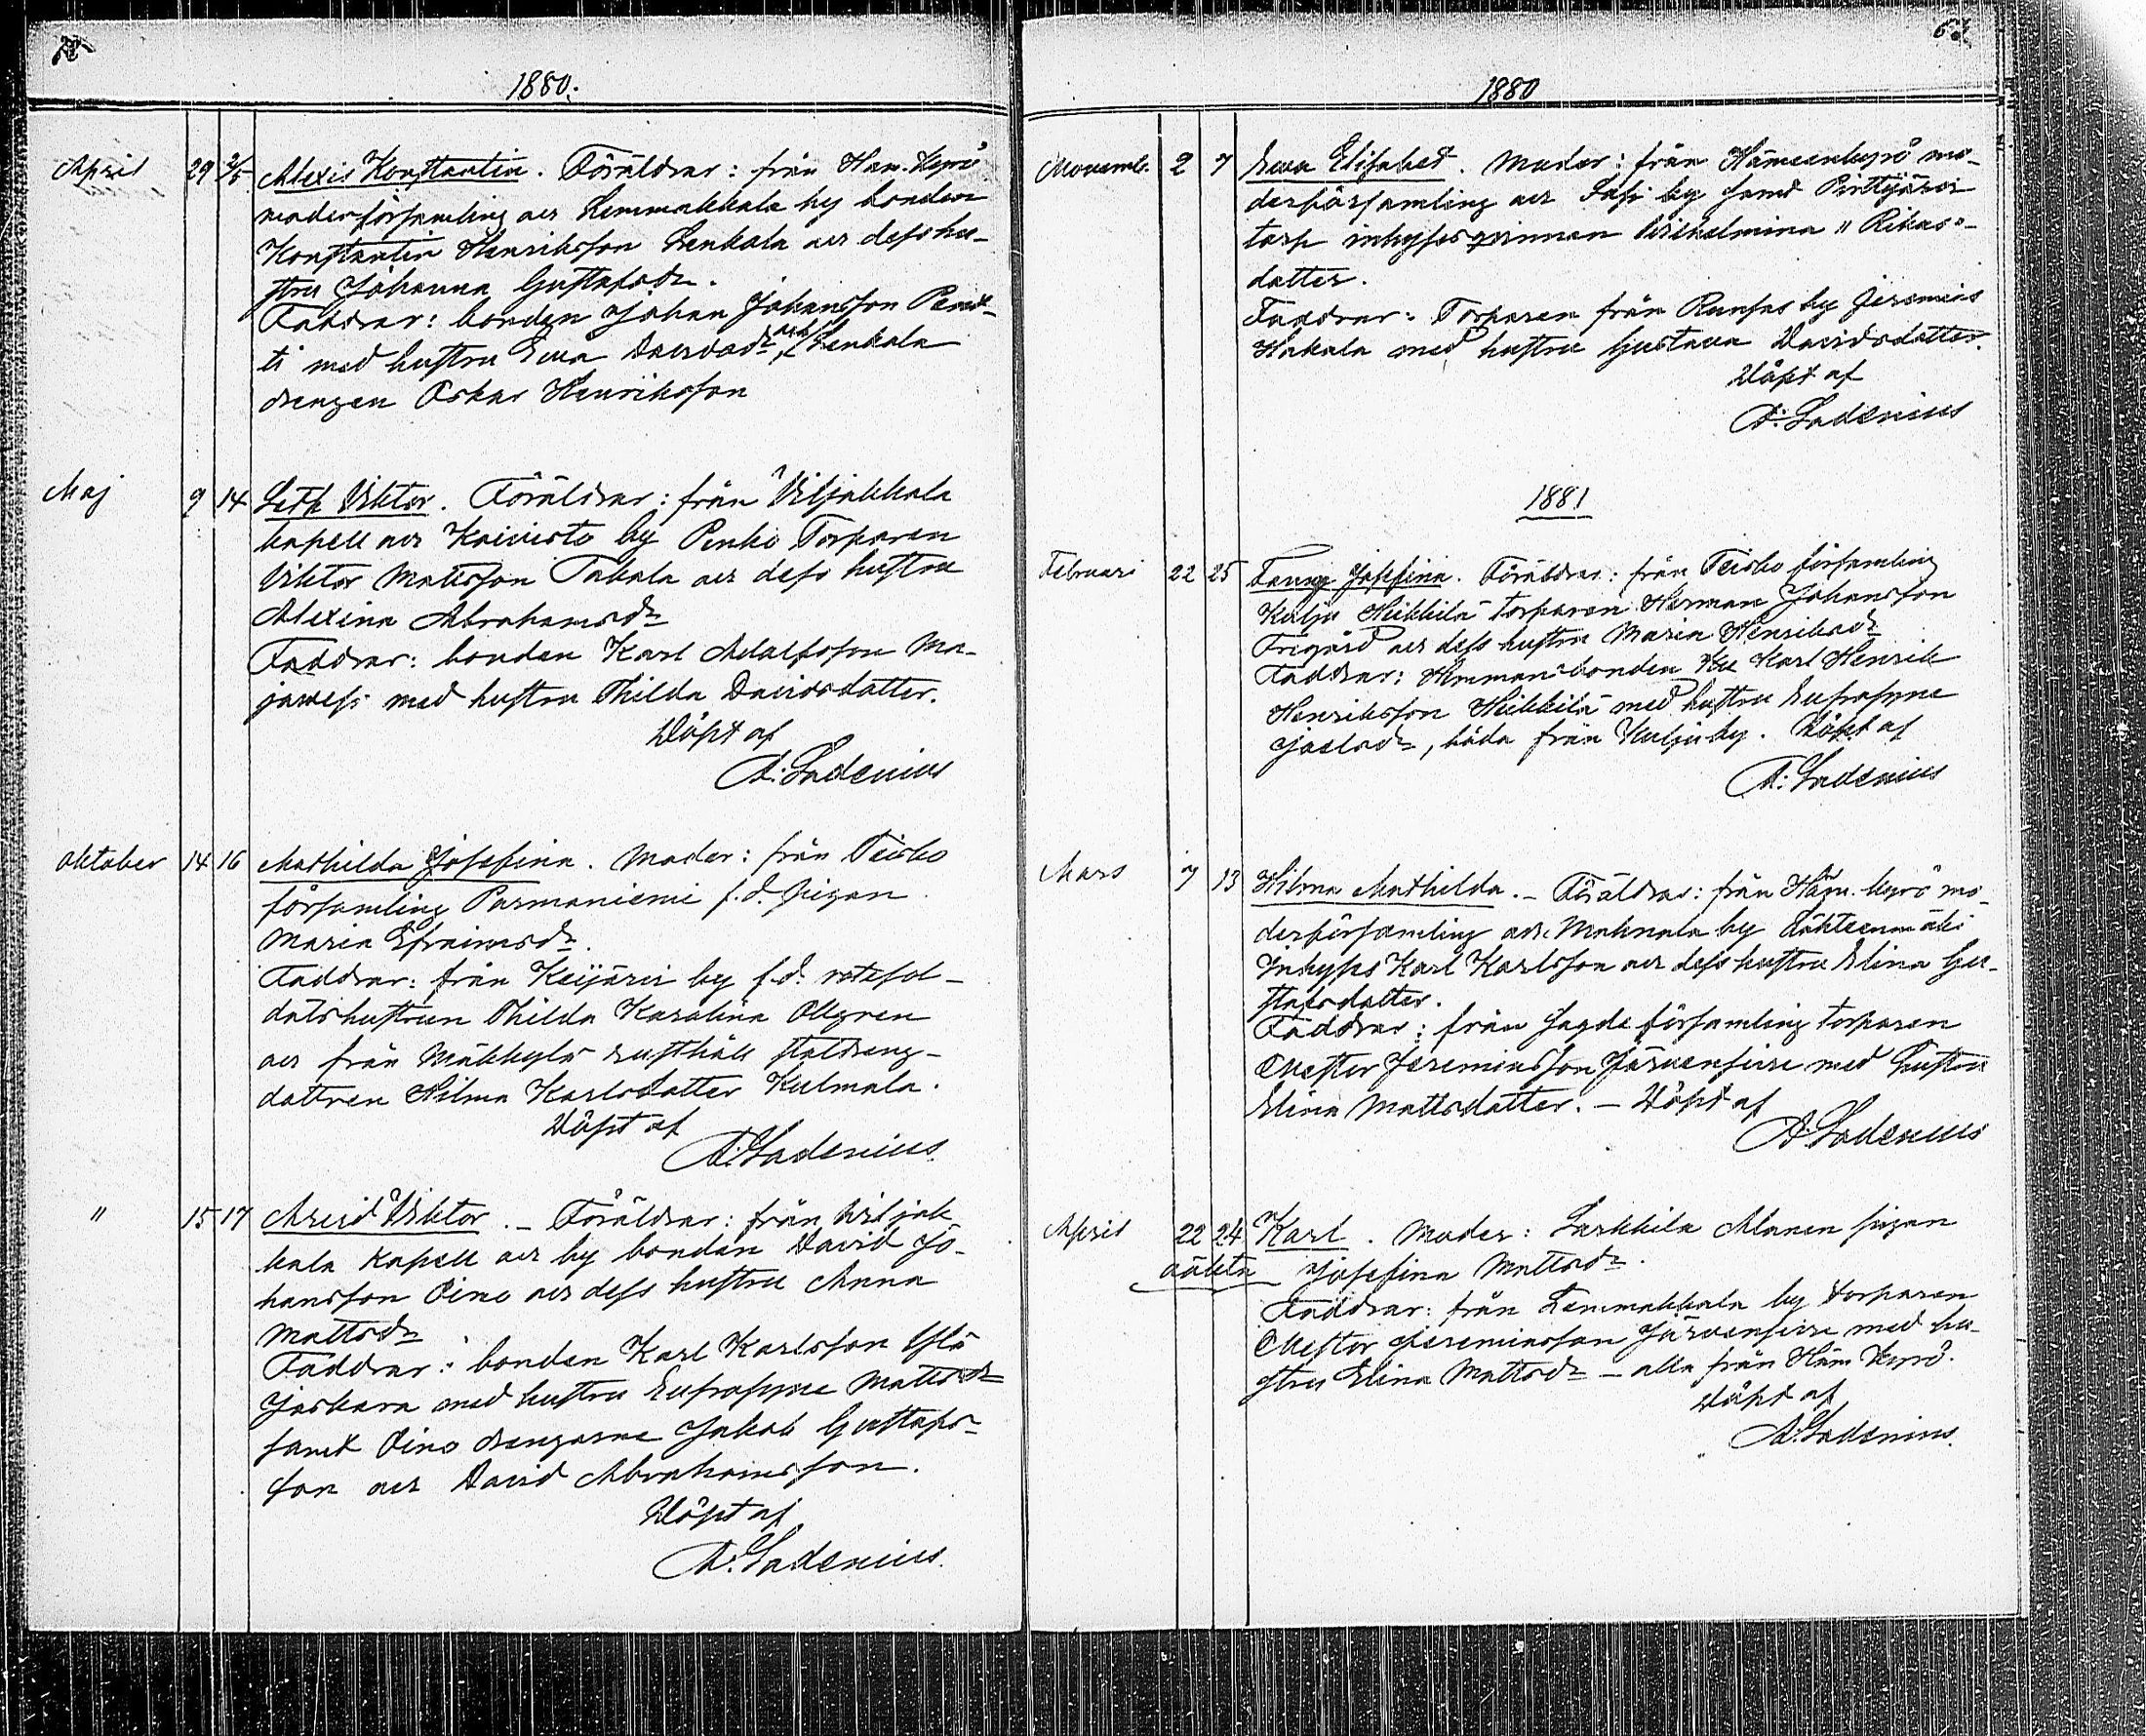 1880.
April 29 2/5 Alexis Konstantin. Föräldrar: från Ham. Kyrö
moderförsamling och Lemmakkala by bonden
Konstantin Henriksson Lenkala och dess hu-
stru Johanna Gustafsdr.
Faddrar: bonden Johan Johansson Pent-
ti med hustru Eva Davidsdr och Lenkala
drengen Oskar Henriksson
Maj 9 14 Seth Viktor. Föräldrar: från Viljakkala
kapell och Koivisto by Penko Torparen
Viktor Mattsson Takala och dess hustru
Alexina Abrahamsdr
Faddrar: bonden Karl Adolfsson Ma-
javesi med hustru Thilda Davidsdatter.
Döpt af
A. Ladenius
Oktober 14 16 Mathilda Josefina. Moder: från Teisko
församling Parmaniemi f.d. pigan
Maria Efraimsdr.
Faddrar: från Keijärvi by f.d. rotesol-
datshustrun Thilda Karolina Ollgren
och från Mäkkylä rusthåll staldreng-
dattren Hilma Karlsdatter Kulmala.
Döpt af
A. Ladenius
" 15 17 Arvid Viktor. – Föräldrar: från Viljak
kala Kapell och by bonden David Jo-
hansson Oino och dess hustru Anna
Mattsdr
Faddrar: bonden Karl Karlsson Yli
Jaskara med hustru Eufrosyne Mattsdr
samt Oino drengarne Jakob Gustafs-
son och David Abrahamsson.
Döpt af
A. Ladenius.
63
1880
Novemb. 2 7 Eva Elisabet. Moder: från Hämeenkyrö mo-
derförsamling och Sasi by samt Pirttijärvi
torp inhysesqvinnan Vilhelmina " Rikas"-
datter.
Faddrar: Torparen från Runsas by Jeremias
Hakala med hustru Gustava Davidsdatter.
Döpt af
A. Ladenius
1881
Februari 22 25 Fanny Josefina. Föräldrar: från Teisko församling
Kulju Heikkilä torparen Herman Johansson
Frigård och dess hustru Maria Henriksdr
Faddrar: Hemmansbonden Karl Henrik
Henriksson Heikkilä med hustru Eufrosyne
Joelsdr, båda från Kulju by. Döpt af
A. Ladenius
Mars 7 13 Hilma Mathilda. – Föräldrar: från Häm. kyrö mo-
derförsamling och Mahnala by Lähteenmäki
Inhyses Karl Karlsson och dess hustru Elina Gu-
stafsdatter.
Faddrar: från sagde församling torparen
Nestor Jeremiasson Järvensivu med hustru
Elina Mattsdatter. – Döpt af
A. Ladenius
April 22 24 Karl. Moder: Sarkkila Alanen pigan
oäkta Josefina Mattsdr.
Faddrar: från Lemmakkala by torparen
Nestor Jeremiasson Järvensivu med hu-
stru Elina Mattsdr – alla från Häm Kyrö.
Döpt af
A. Ladenius.